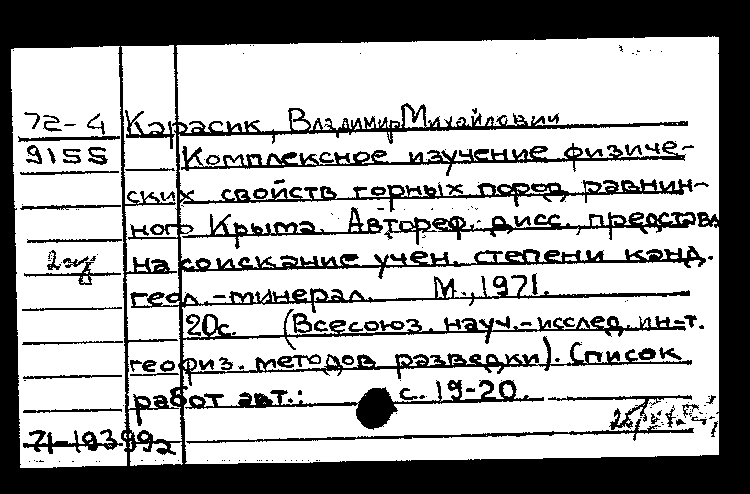 72-4 Карасик, Владимир Михайлович
9155 Комплексное изучение физиче-
ских свойств горных пород равнин-
ного Крыма. Автореф. дисс., представл
2 экз на соискание учен. степени канд.
геол.-минерал. М., 1971.
20с. (Всесоюз. науч.-исслед. ин-т.
геофиз. методов разведки). Список
работ авт.: с. 19-20.
71-19399а